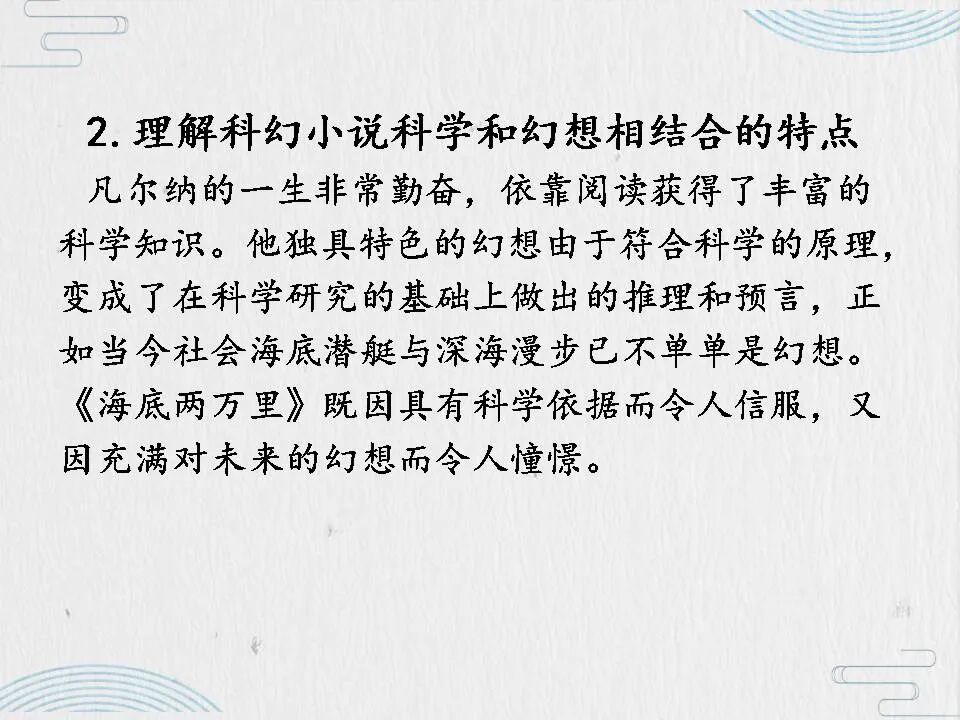 2.理解科幻小说科学和幻想相结合的特点
凡尔纳的一生非常勤奋，依靠阅读获得了丰富的
科学知识。他独具特色的幻想由于符合科学的原理，
变成了在科学研究的基础上做出的推理和预言，正
如当今社会海底潜艇与深海漫步已不单单是幻想。
《海底两万里》既因具有科学依据而令人信服，又
因充满对未来的幻想而令人憧憬。